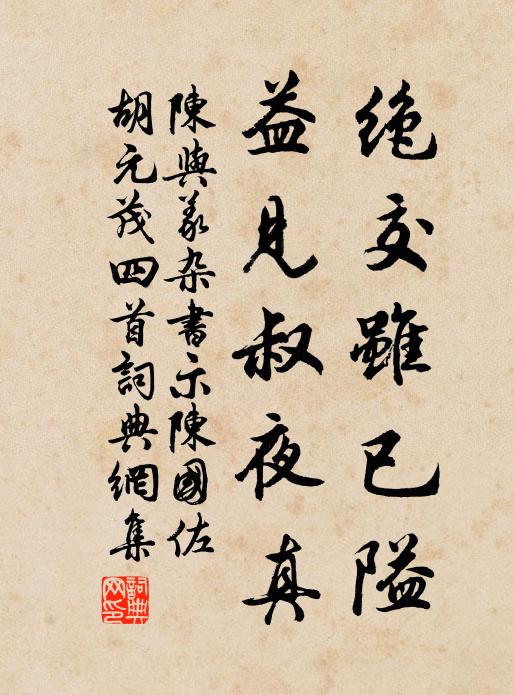 絶交雖已隘
益見叔夜真
陳與義杂書示陳國佐
胡元茂四首詞典網集
詞典網印